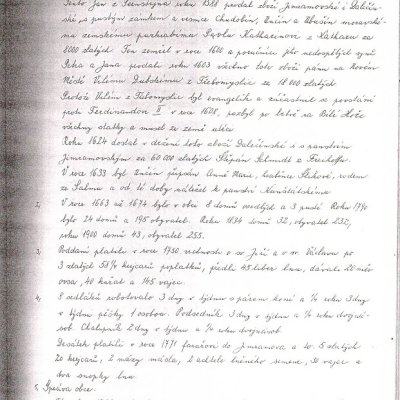 Tento Jan z Pernštejna roku 1588 prodal zboží Jimramovské i Daleči-
ně s pustým zámkem a vesnice Chudobín, Unčín a Ubušín moravské-
mu zemskému prokurátoru Pavlu Katharinovi z Katharu za
8000 zlatých. Ten zemřel v roce 1600 a poručníci jeho nedospělých synů
Petra a Jana prodali roku 1603 všechno toto zboží pánu na Novém
Městě Vilému Dubskému z Třebomyslic za 18 000 zlatých.
Protože Vilém z Třebomyslic byl evangelík a zúčastnil se povstání
proti Ferdinandovi II v roce 1608, pozbyl po bitvě na Bílé Hoře
všechny statky a musel ze země utéci.
Roku 1624 dostal v držení toto zboží Dalečínské i s panstvím
Jimramovským za 60 000 zlatých Štěpán Schmidt z Freihofu.
V roce 1633 byl Unčín připsán Anně Marii, hraběnce Škrlové, rodem
ze Salmu a od té doby náležel k panství Kunštátskému
V roce 1663 až 1674 bylo v obci 8 domů osedlých a 3 pusté. Roku 1790
bylo 24 domů a 195 obyvatel. Roku 1834 domů 32, obyvatel 232,
roku 1900 domů 43, obyvatel 255.
3, Poddaní platili v roce 1750 vrchnosti o sv. Jiří a o sv. Václavu po
3 zlatých 58 1/4 krejcarů poplatků, předli 45 liber lnu, dávali 20 měřic
ovsa, 40 kuřat a 145 vajec.
4, 8 sedláků robotovalo 3 dny v týdnu s párem koní a 1/4 roku 3 dny
v týdnu pěšky 1 osobou. Podsedník 3 dny v týdnu a 1/4 roku dvojná-
sob. Chalupník 2 dny v týdnu a 1/4 roku dvojnásob
Desátek platili v roce 1771 farářovi do Jimramova a to: 5 zlatých
20 krejcarů, 2 mázy másla, 2 achtele lněného semene, 30 vajec a
dva snopky lnu
5, Správa obce.